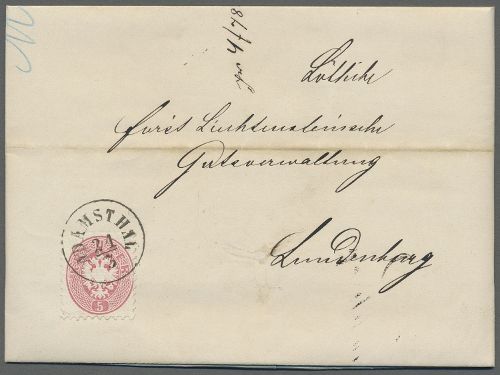 Löbliche
fürst Liechtensteinsche
Gutsverwaltung
Lundenburg
ADAMSTHAL
5